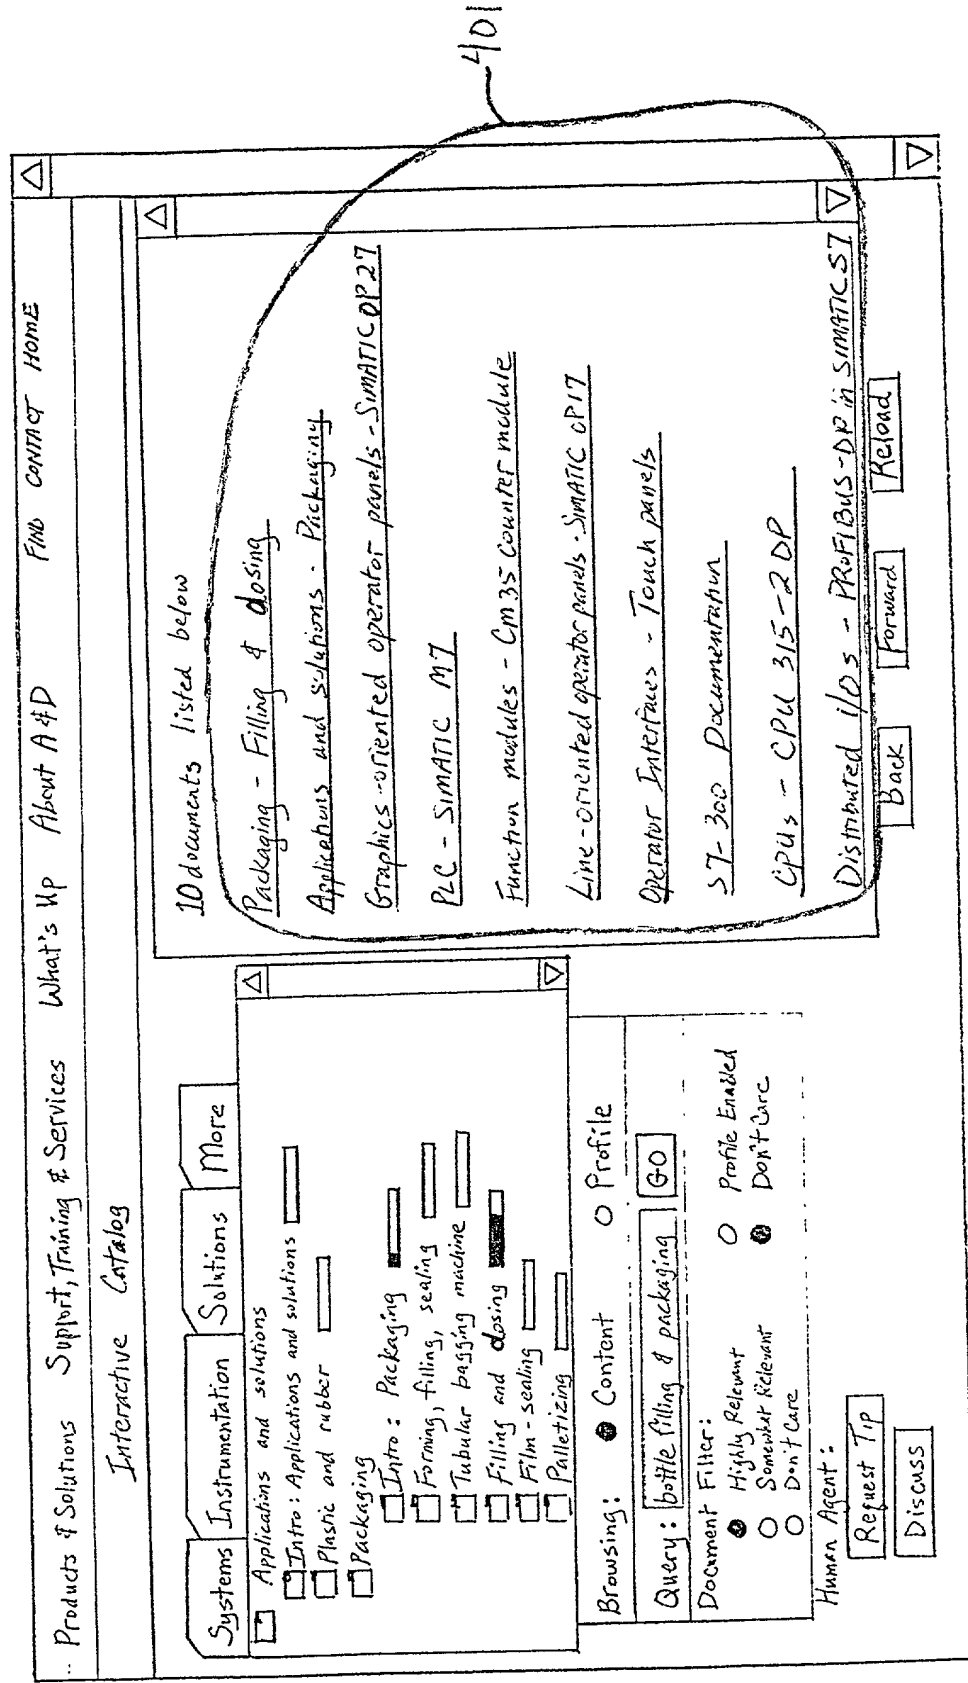 401
Products & Solutions Support, Training & Services What's Up About A&D FIND CONTACT HOME
Interactive Catalog
Systems Instrumentation Solutions More
Applications and solutions
Intro: Applications and solutions
Plastic and rubber
Packaging
Intro: Packaging
Forming, filling, sealing
Tubular bagging machine
Filling and dosing
Film-sealing
Palletizing
Browsing: Content Profile
Query: bottle filling & packaging GO
Document Filter:
Highly Relevant Profile Enabled
Somewhat Relevant Don't Care
Don't Care
Human Agent:
Request Tip
Discuss
10 documents listed below
Packaging - Filling & dosing
Applications and solutions - Packaging
Graphics-oriented operator panels - SIMATIC OP27
PLC - SIMATIC M7
Function modules - Cm 35 Counter module
Line-oriented operator panels - SIMATIC OP17
Operator Interfaces - Touch panels
S7-300 Documentation
CPUs - CPU 315-2 DP
Distributed i/Os - PROFIBUS-DP in SIMATIC S7
Back Forward Reload